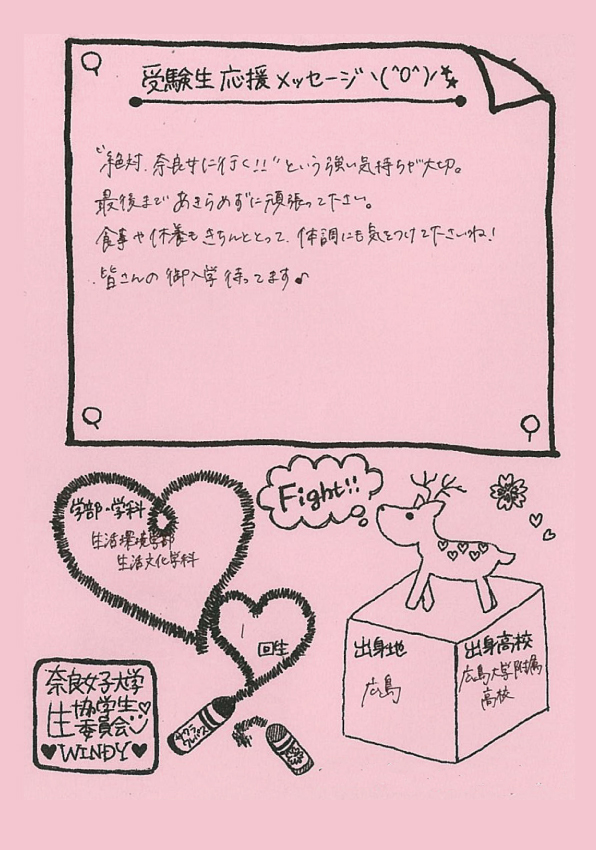 受験生応援メッセージ\(^0^)/
"絶対、奈良女に行く!!"という強い気持ちが大切。
最後まであきらめずに頑張って下さい。
食事や休養もきちんととって、体調にも気をつけて下さいね!
皆さんの御入学待ってます♪
Fight!!
学部・学科
生活環境学部
生活文化学科
1
回生
出身地
広島
出身高校
広島大学附属
高校
奈良女子大学
生協学生
委員会
♥WINDY♥
サクラ
クレパス